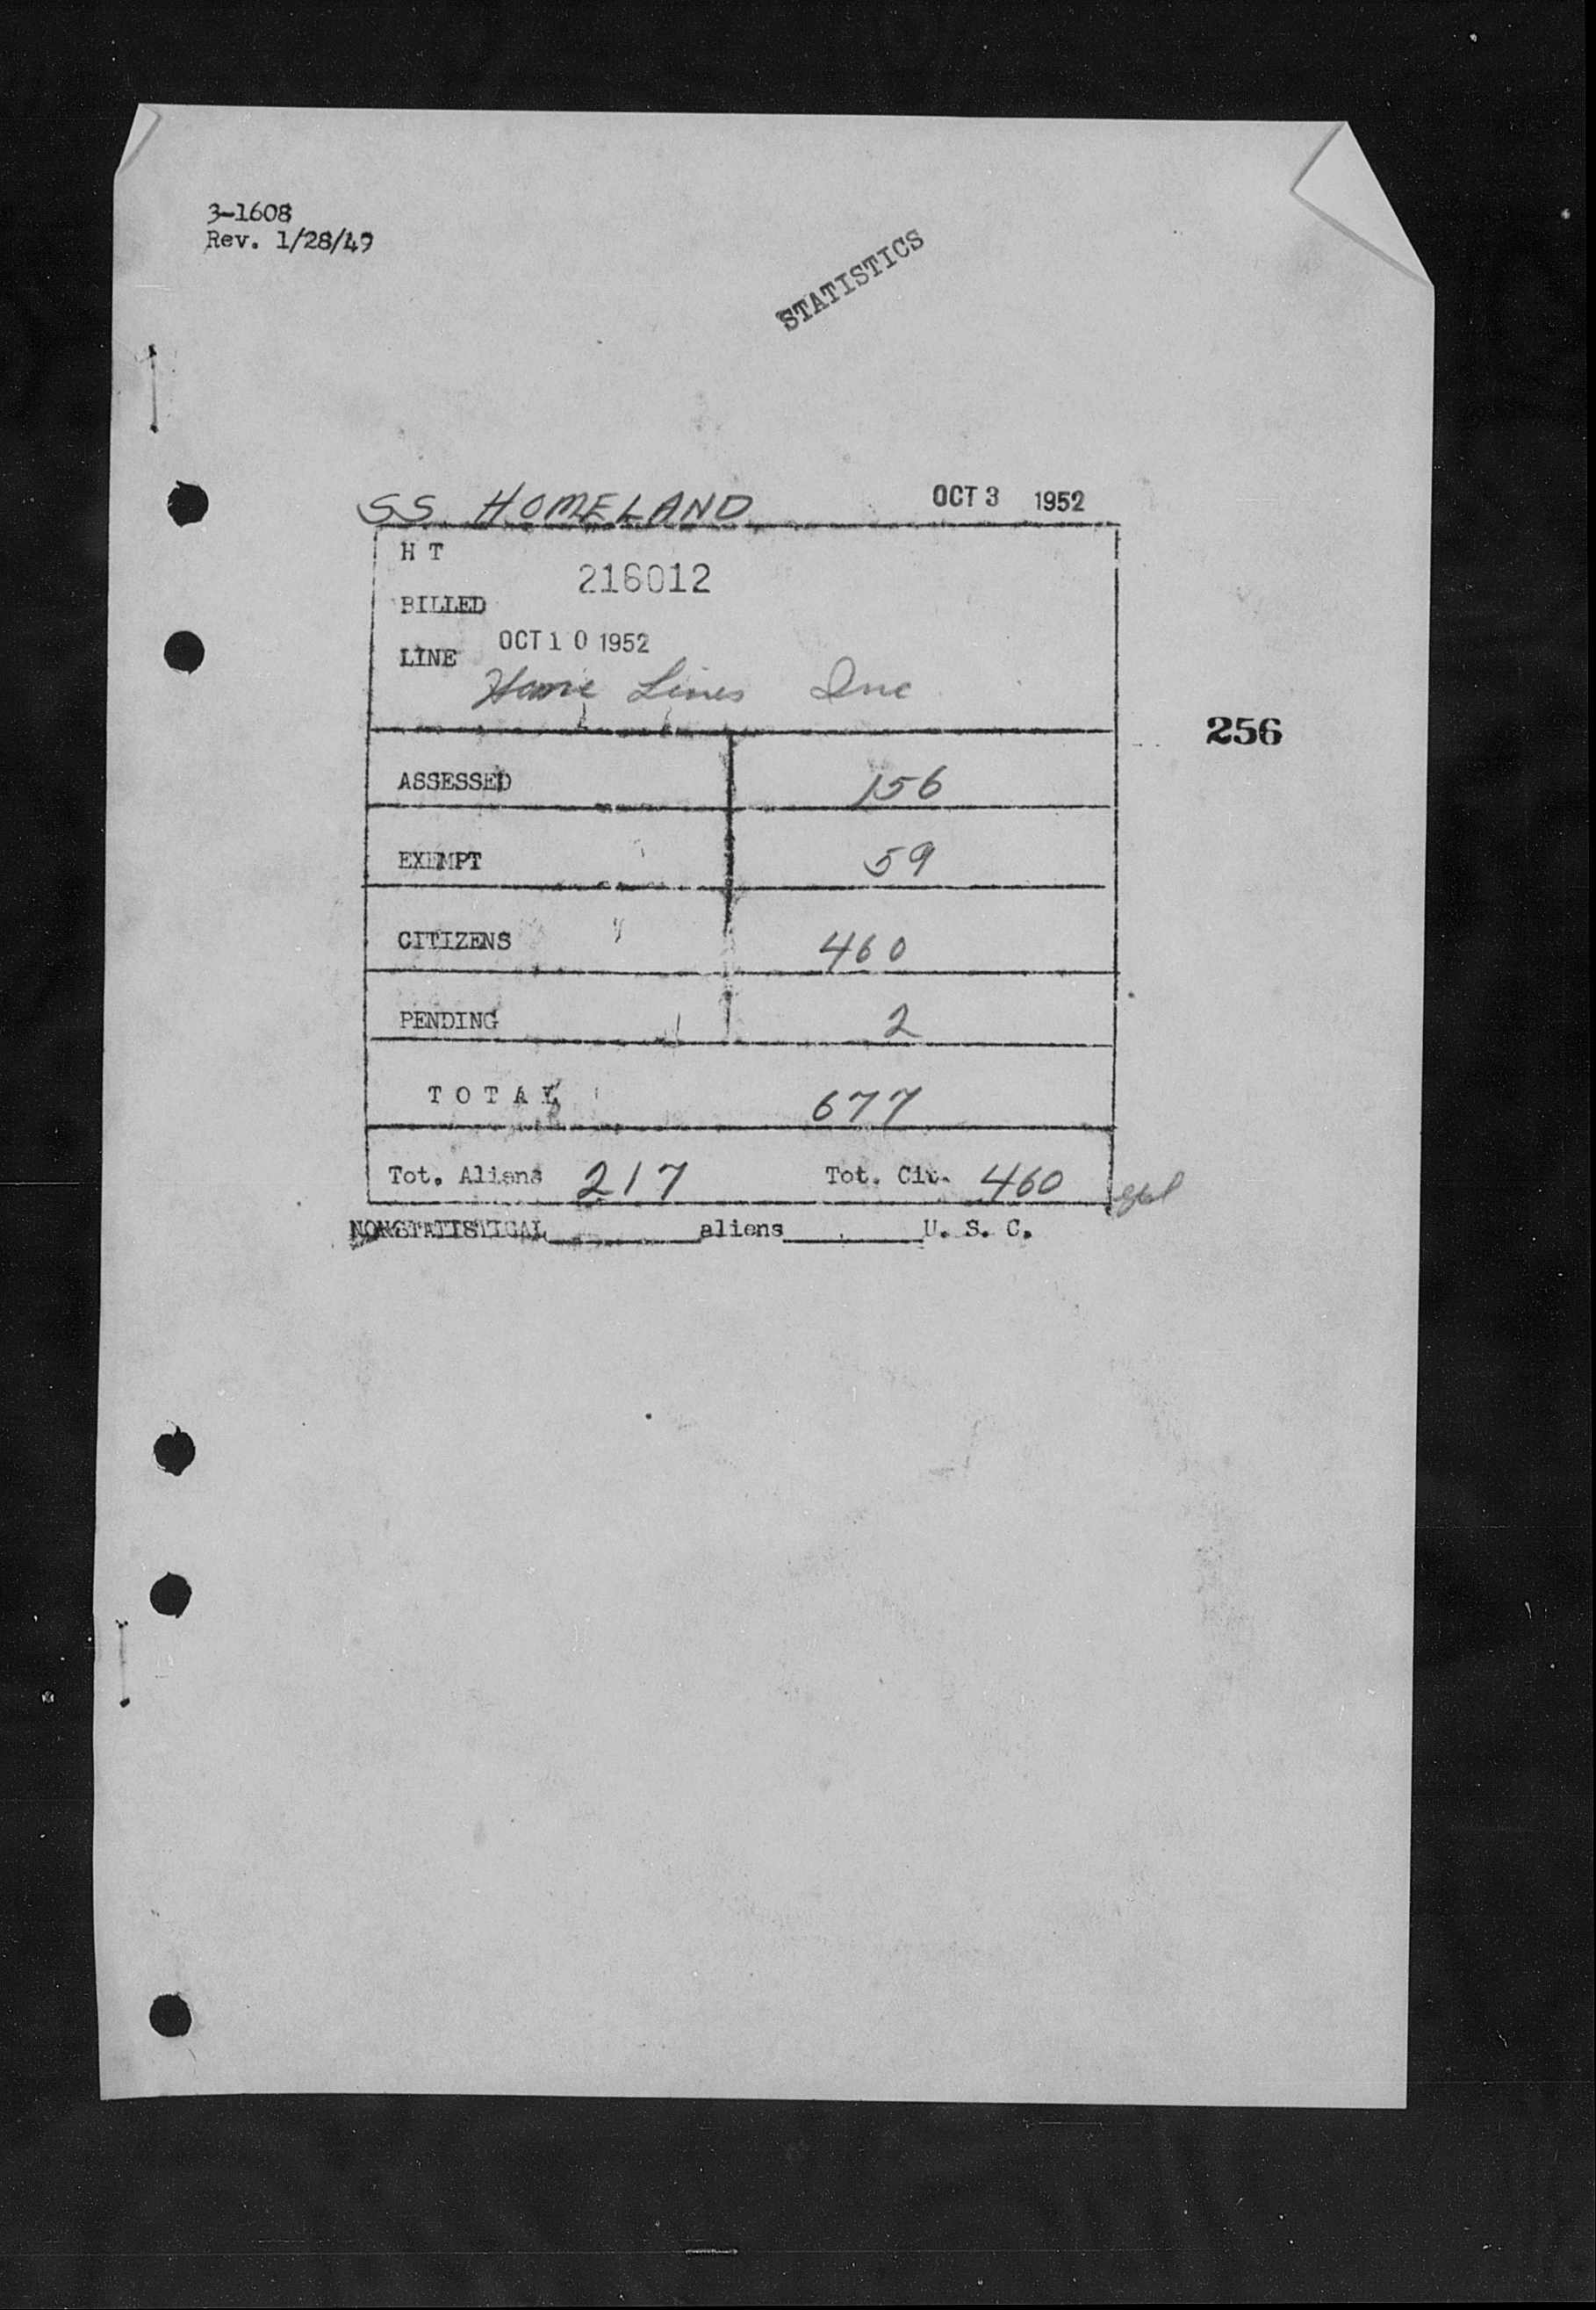 3-1608
Rev. 1/28/49
STATISTICS
SS HOMELAND OCT 3 1952
H T
216012
BILLED
OCT 10 1952
LINE
Home Lines Inc
256
ASSESSED 156
EXEMPT 59
CITIZENS 460
PENDING 2
TOTAL 677
Tot. Aliens 217 Tot. Cit. 460
NONSTATISTICAL aliens U. S. C.